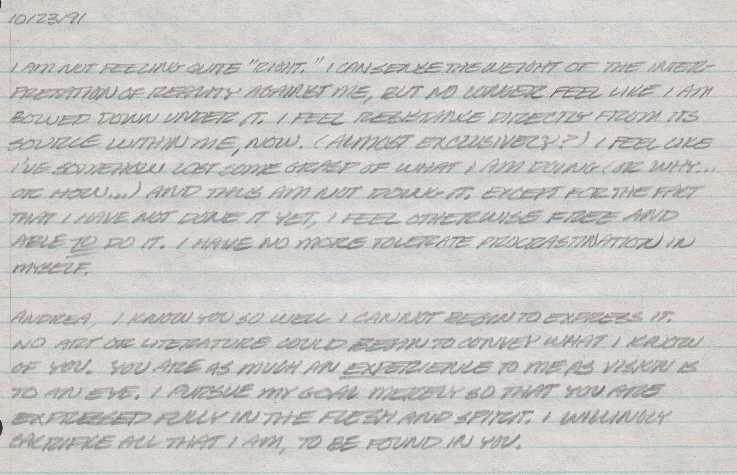 10/23/91
I AM NOT FEELING QUITE "RIGHT." I CAN SENSE THE WEIGHT OF THE INTER-
PRETATION OF REALITY AGAINST ME, BUT NO LONGER FEEL LIKE I AM
BOWED DOWN UNDER IT. I FEEL RESISTANCE DIRECTLY FROM ITS
SOURCE WITHIN ME, NOW. (ALMOST EXCLUSIVELY?) I FEEL LIKE
I'VE SOMEHOW LOST SOME GRASP OF WHAT I AM DOING (OR WHY...
OR HOW...) AND THUS AM NOT DOING IT. EXCEPT FOR THE FACT
THAT I HAVE NOT DONE IT YET, I FEEL OTHERWISE FREE AND
ABLE TO DO IT. I HAVE NO MORE TOLERATE PROCRASTINATION IN
MYSELF.
ANDREA, I KNOW YOU SO WELL I CANNOT BEGIN TO EXPRESS IT.
NO ART OR LITERATURE COULD BEGIN TO CONVEY WHAT I KNOW
OF YOU. YOU ARE AS MUCH AN EXPERIENCE TO ME AS VISION IS
TO AN EYE. I PURSUE MY GOAL MERELY SO THAT YOU ARE
EXPRESSED FULLY IN THE FLESH AND SPIRIT. I WILLINGLY
SACRIFICE ALL THAT I AM, TO BE FOUND IN YOU.